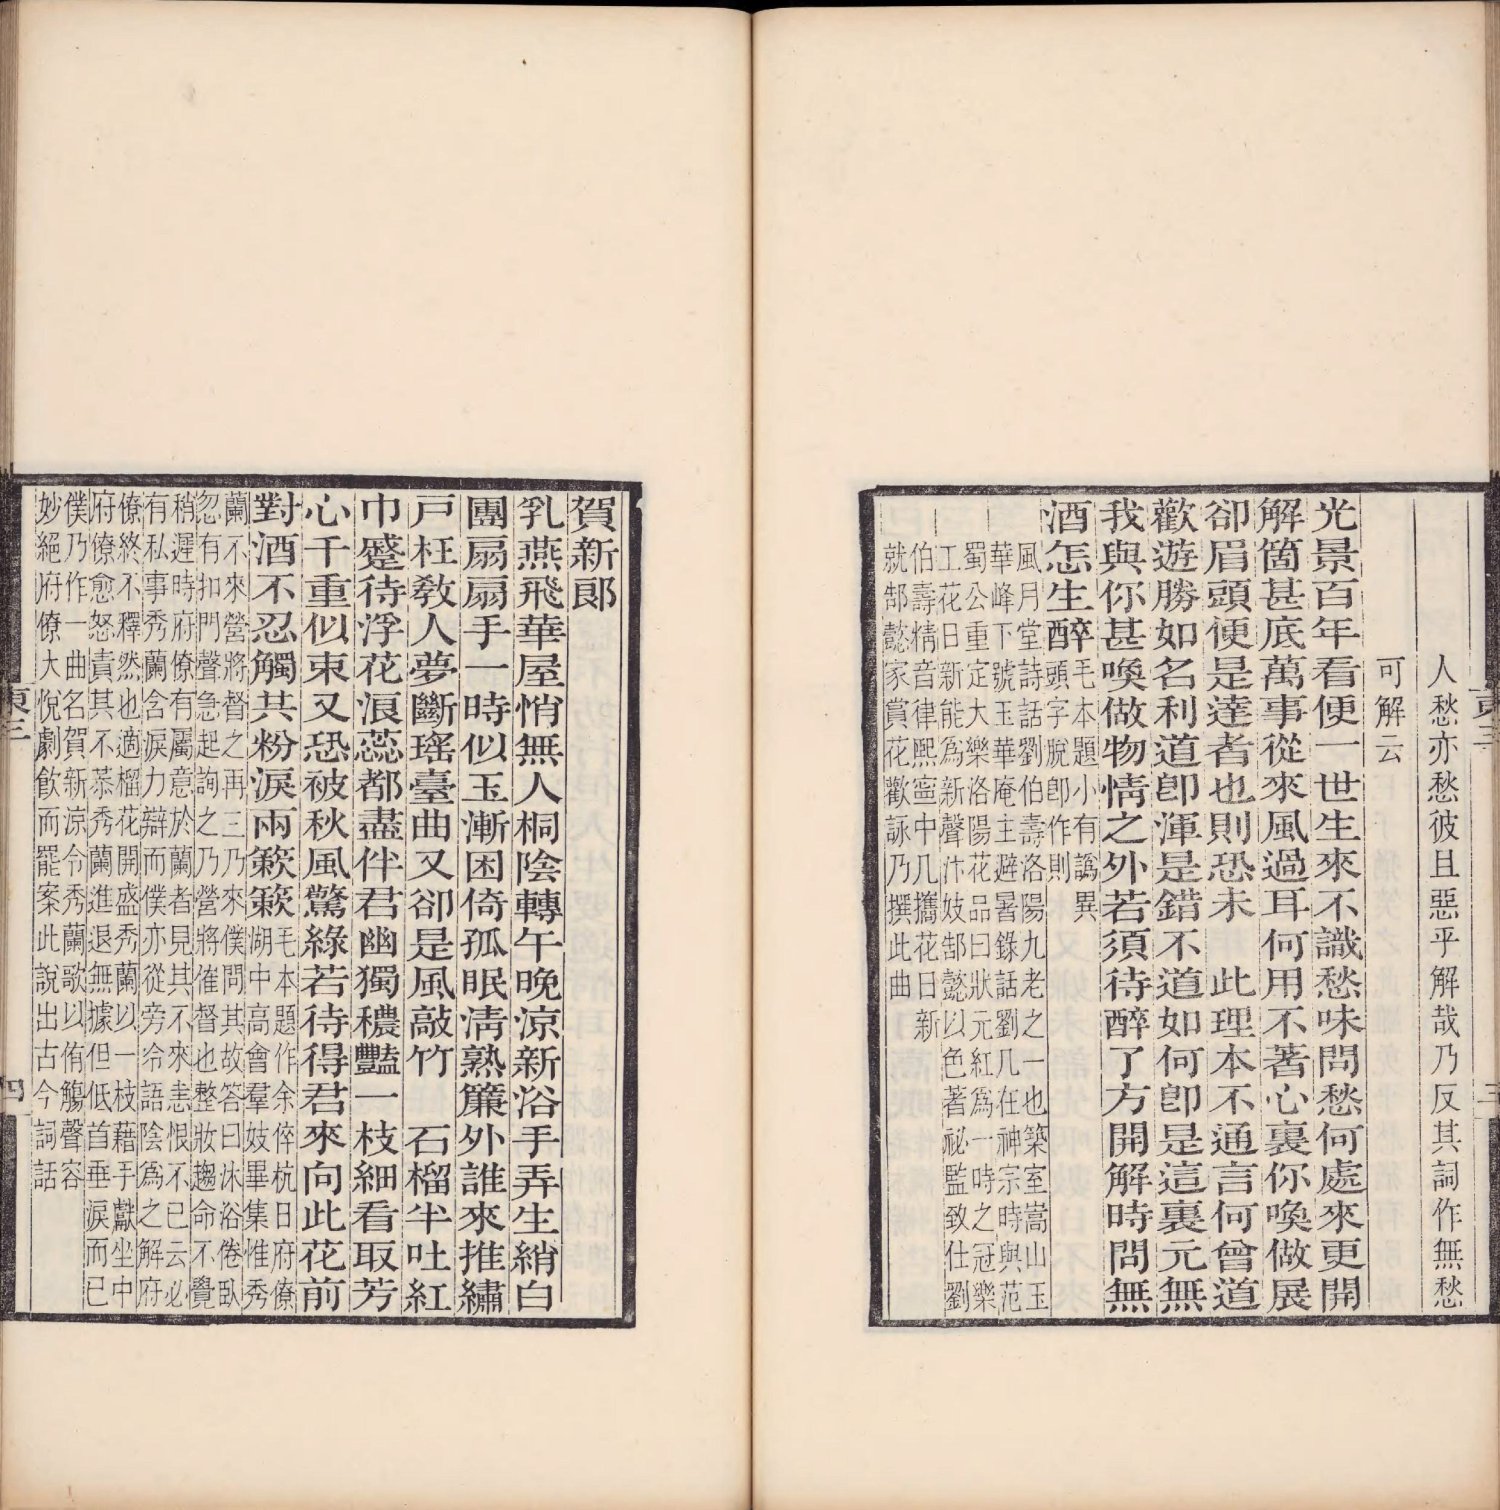 人愁亦愁彼且惡乎解哉乃反其詞作無愁
可解云
光景百年看便一世生來不識愁味問愁何處來更開
解箇甚底萬事從來風過耳何用不著心裏你喚做展
卻眉頭便是達者也則恐未　此理本不通言何曾道
歡遊勝如名利道卽渾是錯不道如何卽是這裏元無
我與你甚喚做物情之外若須待醉了方開解時問無
酒怎生醉
毛本題小有譌異
頭字脫卽作則
風月堂詩話劉伯壽洛陽九老之一也築室嵩山玉
華峰下號玉華庵主避暑錄話劉几在神宗時與范
蜀公重定大樂洛陽花品曰狀元紅爲一時之冠樂
工花日新能爲新聲汴妓郜懿以色著祕監致仕劉
伯壽精音律熙寧中几攜花日新
就郜懿家賞花歡詠乃撰此曲
賀新郞
乳燕飛華屋悄無人桐陰轉午晚涼新浴手弄生綃白
團扇扇手一時似玉漸困倚孤眠淸熟簾外誰來推繡
戶枉敎人夢斷瑤臺曲又卻是風敲竹　石榴半吐紅
巾蹙待浮花浪蕊都盡伴君幽獨穠豔一枝細看取芳
心千重似束又恐被秋風驚綠若待得君來向此花前
對酒不忍觸共粉淚兩簌簌
毛本題作余倅杭日府僚
湖中高會羣妓畢集惟秀
蘭不來營將督之再三乃來僕問其故答曰沐浴倦臥
忽有扣門聲急起詢之乃營將催督也整妝趨命不覺
稍遲時府僚有屬意於蘭者見其不來恚恨不已云必
有私事秀蘭含淚力辯而僕亦從旁冷語陰爲之解府
僚終不釋然也適榴花開盛秀蘭以一枝藉手獻坐中
府僚愈怒責其不恭秀蘭進退無據但低首垂淚而已
僕乃作一曲名賀新涼令秀蘭歌以侑觴聲容
妙絕府僚大悅劇飮而罷案此說出古今詞話
東三
四